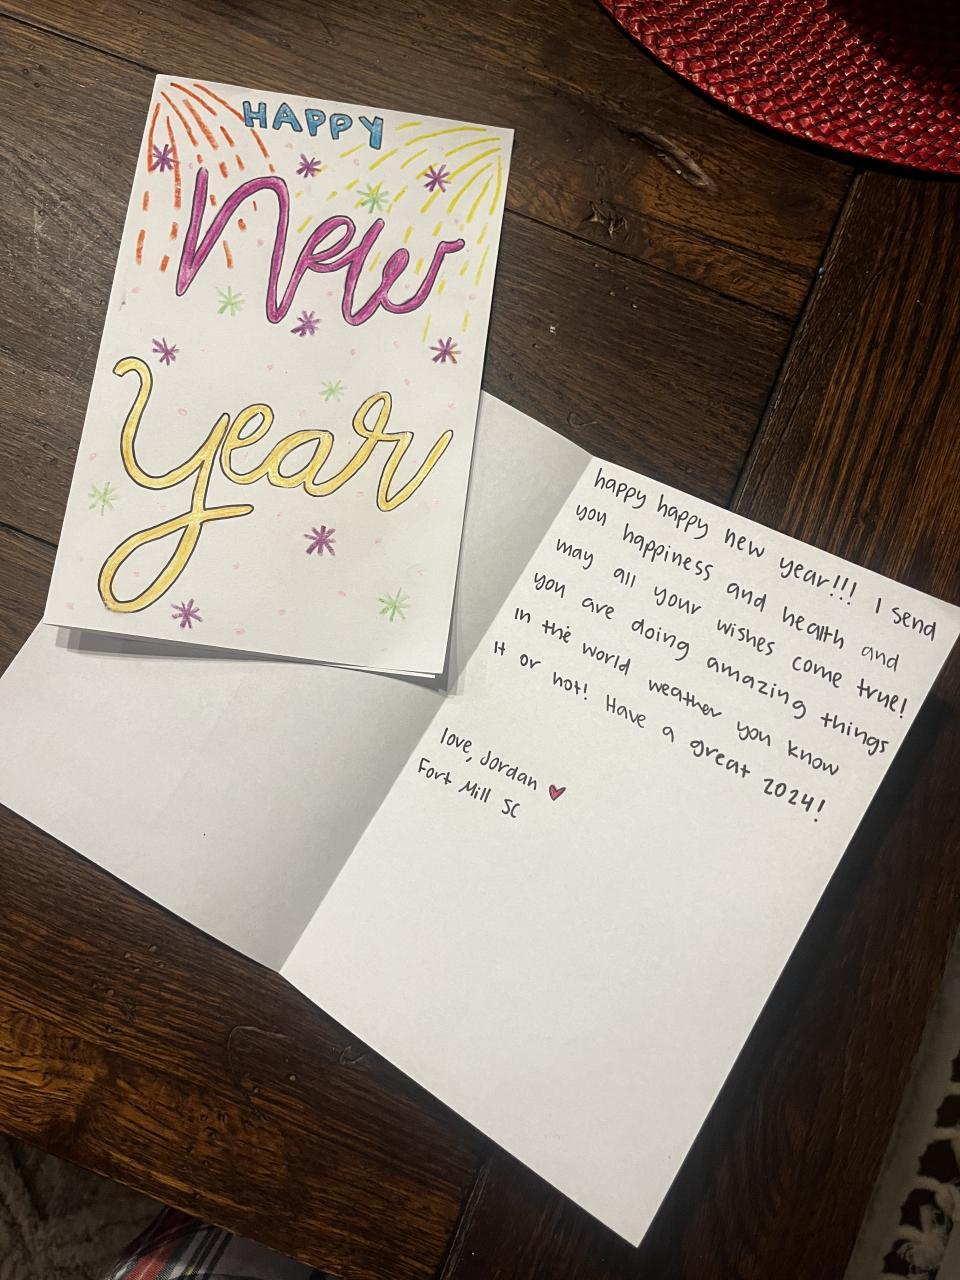 HAPPY
New
Year
happy happy new year!!! I send
you happiness and health and
may all your wishes come true!
you are doing amazing things
in the world weather you know
it or not! Have a great 2024!
love, Jordan ♥
Fort Mill SC